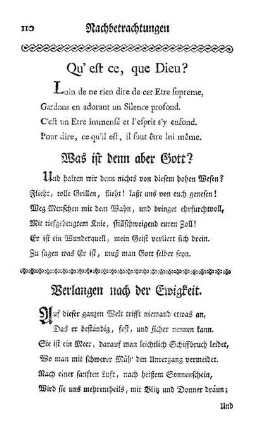 110 Nachbetrachtungen
Qu' est ce, que Dieu?
Loin de ne rien dire de cet Etre supreme,
Gardons en adorant un Silence profond.
C'est un Etre immensé et l'esprit s'y confond.
Pour dire, ce qu'il est, il faut être lui même.
Was ist denn aber Gott?
Und halten wir dem nichts von diesem hohen Wesen?
Flieht, tolle Grillen, flieht! laßt uns von euch genesen!
Weg Menschen mit dem Wahn, und bringet ehrfurchtvoll,
Mit tiefgebeugtem Knie, stillschweigend euren Zoll!
Er ist ein Wunderquell, mein Geist verliert sich drein.
Zu sagen was Er ist, muß man Gott selber seyn.
Verlangen nach der Ewigkeit.
Auf dieser ganzen Welt trifft niemand etwas an,
Das er beständig, fest, und sicher nennen kann.
Sie ist ein Meer, darauf man leichtlich Schiffbruch leidet,
Wo man mit schwerer Müh' den Untergang vermeidet.
Nach einer sanften Luft, nach heißem Sonnenschein,
Wird sie uns mehrentheils, mit Blitz und Donner dräun;
Und